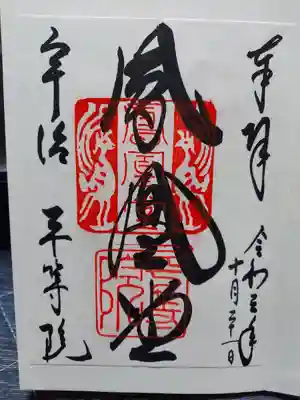 奉拝
令和三年
十月
鳳凰堂
宇治 平等院